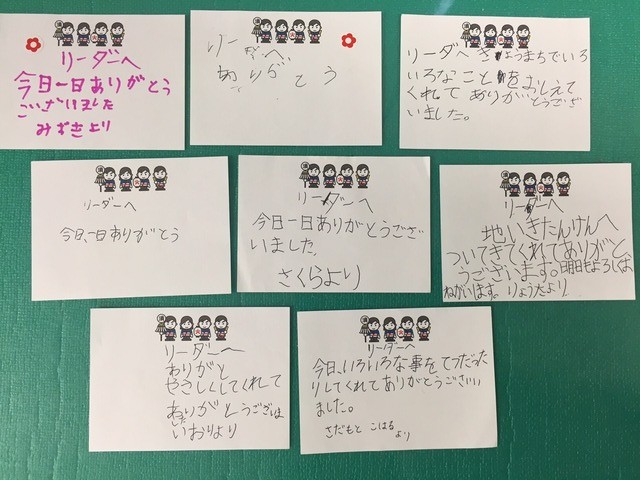 リーダーへ
今日一日ありがとう
ございました
みずきより
リーダーへ
ありがとう
リーダへ きょうまちでいろ
いろなことをおしえて
くれてありがとうござ
いました。
リーダーへ
今日、一日ありがとう
リーダーへ
今日一日ありがとうござ
いました
さくらより
リーダーへ
地いきたんけんへ
ついてきてくれてありがと
うございます。明日もよろしくお
ねがいます。りょうたより
リーダーへ
ありがと
やさしくしてくれて
ありがとうござい
いおりより
リーダーへ
今日、いろいろな事をてつだった
りしてくれてありがとうござい
ました。
さだもと こはる
より